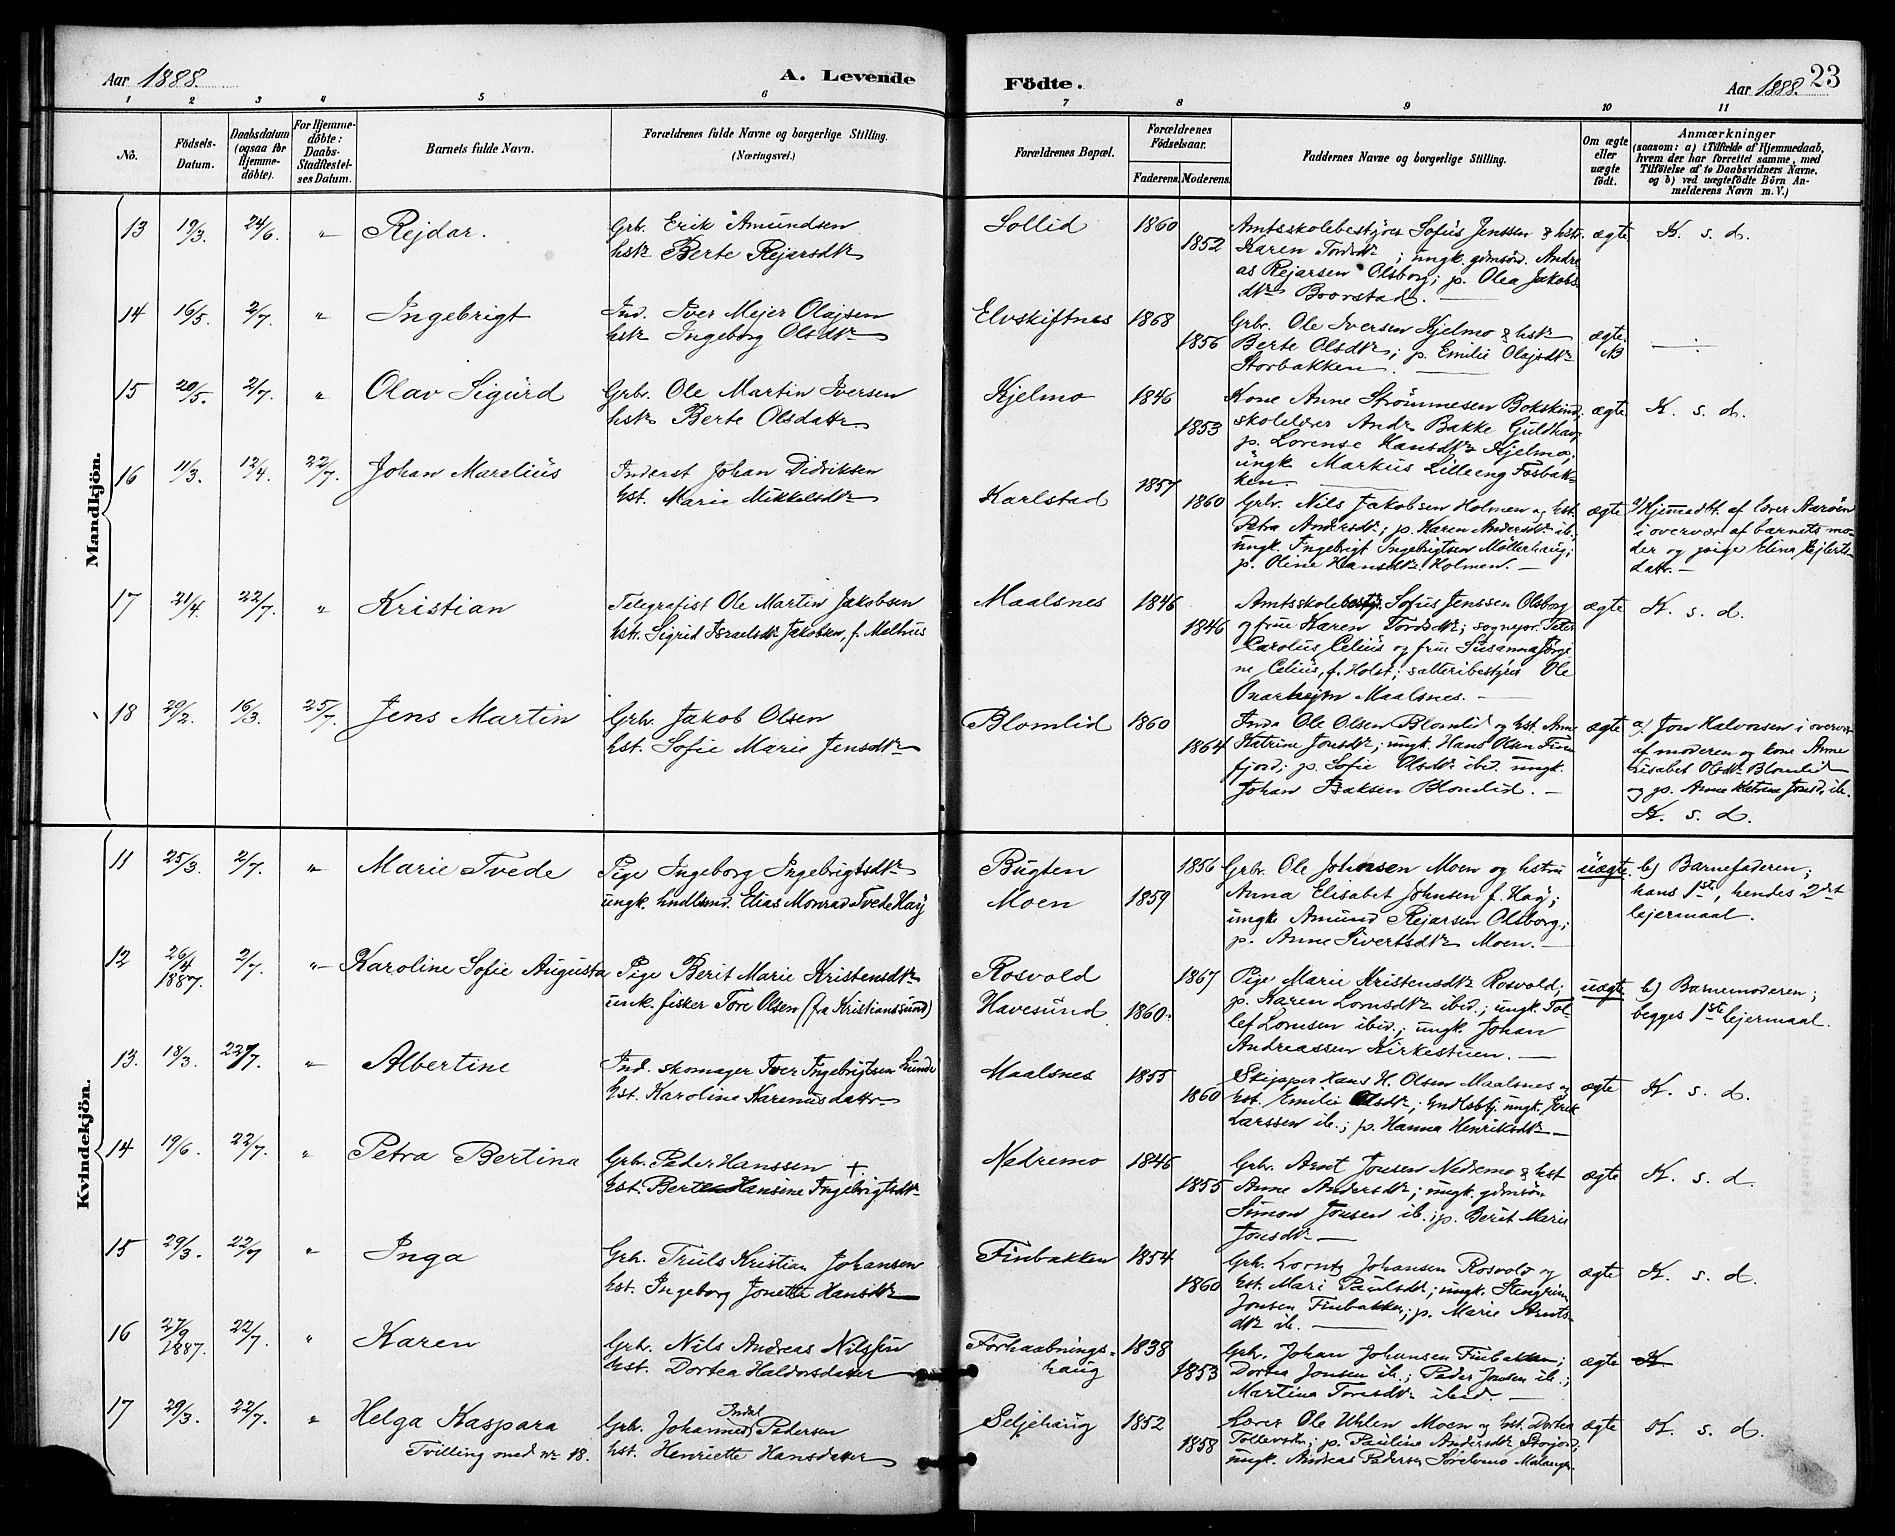 Aar 1888.
A. Levende
Födte.
Aar 1888.
23
1 2 3 4 5 6 7 8 9 10 11
No.
Födsels-
Datum.
Daabsdatum
(ogsaa for
Hjemme-
döbte).
For Hjemme-
döbte:
Daabs-
Stadfæstel-
ses Datum.
Barnets fulde Navn.
Forældrenes fulde Navne og borgerlige Stilling.
(Næringsvei.)
Forældrenes Bopæl.
Forældrenes
Födselsaar.
Faderens. Moderens.
Faddernes Navne og borgerlige Stilling.
Om ægte
eller
uægte
født.
Anmærkninger
(saasom: a) i Tilfælde af Hjemmedaab,
hvem der har forrettet samme, med
Tilföielse af to Daabsvidners Navne.
og b) ved uægtefödte Börn An-
melderens Navn m. V.)
Mandkjön.
13 19/3. 24/6. " Rejdar.
Grb. Erik Amundsen
hstr Berte Rejarsdtr
Sollid 1860
1852
Amtsskolebestyrer Sofus Jenssen & hstr
Karen Tordsdtr; ungk. gdmsön Andre
as Rejarsen Olsborg; p. Olea Jakobs
dtr Boorstad.
ægte K. s. d.
14 16/5. 2/7. " Ingebrigt
Ind. Iver Mejer Olajsen
hstr Ingeborg Olsdtr
Elvskiftnes 1868
1856
Grbr. Ole Iversen Kjelmo & hstr
Berte Olsdtr; p. Emilie Olajsdtr
Storbakken.
ægte.
NB
15 20/5. 2/7. " Olav Sigurd
Grbr. Ole Martin Iversen
hstr Berte Olsdatr
Kjelmo 1846
1853
Kone Anne Strömmesen Bokskind;
skolelærer Andr. Bakke Guldhav;
p. Lorense Hansdtr Kjelmo;
ungk. Markus Lilleeng Fosbak-
ken.
ægte K. s. d.
16 11/3. 12/4. 22/7. Johan Marelius
Inderst Johan Didriksen
hst. Marie Mikkelsdtr
Karlstad 1857
1860
Grbr. Nils Jakobsen Holmen og hst.
Petra Andersdtr; p. Karen Andersdtr ib.
ungk. Ingebrigt Ingebrigtsen Möllerhaug;
p. Oline Hansdtr Holmen.
ægte a) Hjemmedbt. af lærer Aarøen
i overvær af barnets mo-
der og pige Elina Ejlerts-
datr.
17 21/4. 22/7. " Kristian
Telegrafist Ole Martin Jakobsen
hst. Sigrid Israelsdtr Jakobsen, f. Melhus
Maalsnes 1846
1846
Amtsskolebestyr. Sofus Jenssen Olsborg
og frue Karen Tordsdtr; sognepr. Peter
Carolus Celius og frue Susanna Jörgi
ne Celius, f. Holst; salteribestyrer Ole
Maalsnes.
ægte K. s. d.
18 29/2. 16/3. 25/7. Jens Martin
Grb. Jakob Olsen
hst. Sofie Marie Jensdtr
Blomlid 1860
1864
Inds. Ole Olsen Blomlid og hst. Anne
Katrine Jonsdtr; ungk. Hans Olsen Finn
fjord; p. Sofie Olsdtr ibid. ungk.
Johan Isaksen Blomlid.
ægte a) Jon Halvorsen i overvær
af moderen og kone Anne
Lisabet Olsdtr Blomlid
og p. Anne Katrine Jonsd. ib.
K. s. d.
Kvindekjön.
11 25/3. 2/7. " Marie Tvede
Pige Ingeborg Ingebrigtsdtr
ungk. hndlsmd. Elias Monrad Tvede Høj
Bugten
Moen 1859
1856
Grbr. Ole Johnsen Moen og hstru
Anna Elisabet Johnsen f. Høg;
ungk. Amund Rejarsen Olsborg;
p. Anne Sivertsdtr Moen.
uægte. b) Barnefaderen;
hans 1ste, hendes 2det
lejermaal.
12 26/4 1887. 2/7. " Karoline Sofie Augusta
Pige Berit Marie Kristensdtr
unk. fisker Tore Olsen (fra Kristianssund)
Rosvold
Havesund 1860.
1867
Pige Marie Kristensdtr Rosvold;
p. Karen Lornsdtr ibid.; ungk. Tol
lef Lornsen ibid.; ungk. Johan
Andreassen Kirkestuen.
uægte b) Barnemoderen;
begges 1ste lejermaal.
13. 18/3. 22/7. " Albertine
Ind. skomager Iver Ingebrigtsen Lunde
hst. Karoline Karenusdatr
Maalsnes 1855
1860
Skipper Hans H. Olsen Maalsnes og
hst. Emilie Olsdtr; hndlsbtj. ungk. Erik
Larssen ib.; p. Hanna Henriksdtr
ægte K. s. d.
14 19/6. 22/7. " Petra Bertina
Grbr. Peder Hanssen +
hst. Berte Hansine Ingebrigtsdtr
Nedremo 1846
1855
Grbr. Arnt Jonsen Nedremo & hst
Anne Andersdtr; ungk. gdmsön
Simon Jonsen ib.; p. Berit Marie
Jonsdtr
ægte K. s. d.
15 29/3. 22/7 " Inga
Grb. Truls Kristian Johansen
hst. Ingeborg Jonette Hansdtr
Finbakken 1854
1860
Grb. Lorntz Johansen Rosvold og
hst. Mari Paulsdtr; ungk. Stengrim
Jonsen Finbakken; p. Marie Arnts-
dtr ib.
ægte K. s. d.
16 27/9 1887. 22/7. " Karen
Grb. Nils Andreas Nilssen
hst. Dortea Haldorsdatter
Forhaabnings-
haug 1838
1853
Grb. Johan Johansen Finbakken;
Dortea Jonsen ib.; Peder Jonsen ib.;
Martina Toresdtr ibid.
ægte K
17 29/3. 22/7. " Helga Kaspara
Tvilling med nr 18.
Grb. Johannes Indal Pedersen
hst. Henriette Hansdatter
Seljehaug 1852
1858
Lærer Ole Uhlen Moen og hst. Dortea
Tollevsdtr; p. Pauline Andersdtr Storjord;
ungk. Andreas Pedersen Sørelvmo Malangen.
ægte K. s. d.